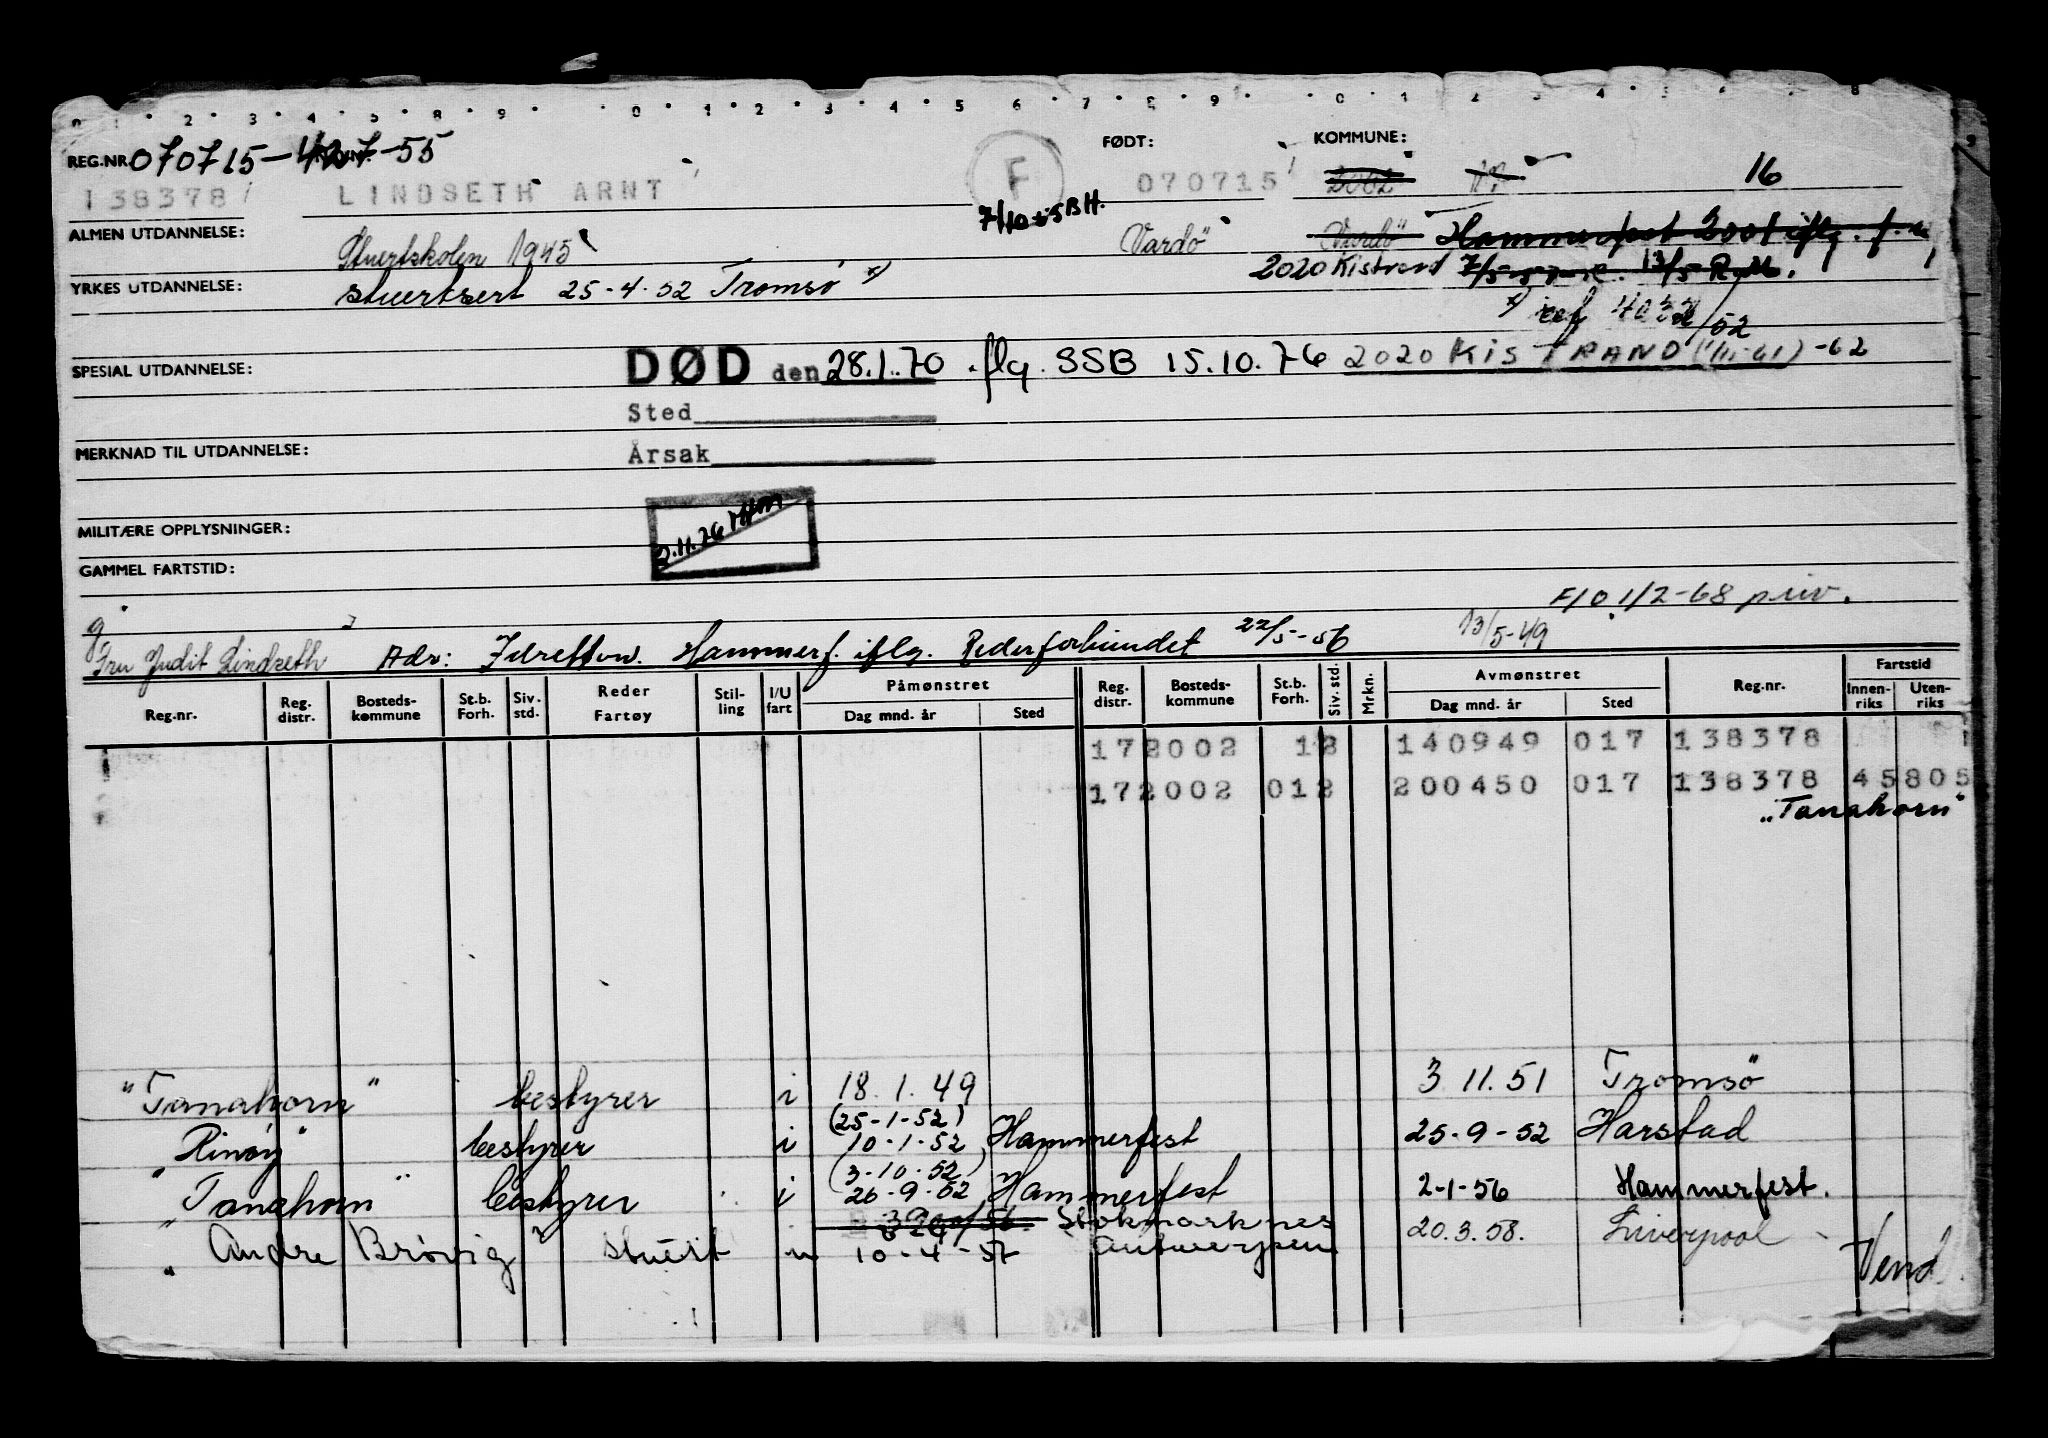 REG.NR. 070715-427-55
FØDT: KOMMUNE:
138378 LINDSETH ARNT F 070715 16
7/10-55 BH.
ALMEN UTDANNELSE: Stuertskolen 1945 Vardö Vardö Hammerfest 2001 iflg.
YRKES UTDANNELSE: stuertsert 25-4-52 Tromsø x) 2020 Kistrand
x) ref 4032/52
SPESIAL UTDANNELSE: DØD den 28.1.70 iflg. SSB 15.10.76 2020 KISTRAND -62
Sted
MERKNAD TIL UTDANNELSE: Årsak
2.11.76
MILITÆRE OPPLYSNINGER:
GAMMEL FARTSTID:
F10 1/2-68 priv.
g
Fru Judit Lindseth Adr: Hammerf. iflg. Rederforbundet 22/5-56 13/5-49
Reg.nr. Reg. distr. Bosteds- kommune St.b. Forh. Siv. std. Reder Fartøy Stil- ling I/U fart Påmønstret Dag mnd. år Sted Reg. distr. Bosteds- kommune St.b. Forh. Siv. std. Mrkn. Avmønstret Dag mnd. år Sted Reg.nr. Fartstid Innen- riks Uten- riks
172002 12 140949 017 138378
172002 012 200450 017 138378 45805
„Tanahorn"
"Tanahorn" bestyrer i 18.1.49 3 11.51 Tromsö
(25-1-52)
Rinøy" bestyrer i 10-1-52 Hammerfest 25-9-52 Harstad
(3-10-52)
"Tanahorn" bestyrer i 26-9-52 Hammerfest 2-1-56 Hammerfest.
Stokmarknes
„Andre Brøvig" stuert u 10-4-57 Antwerpen 20.3.58. Liverpool
Vend